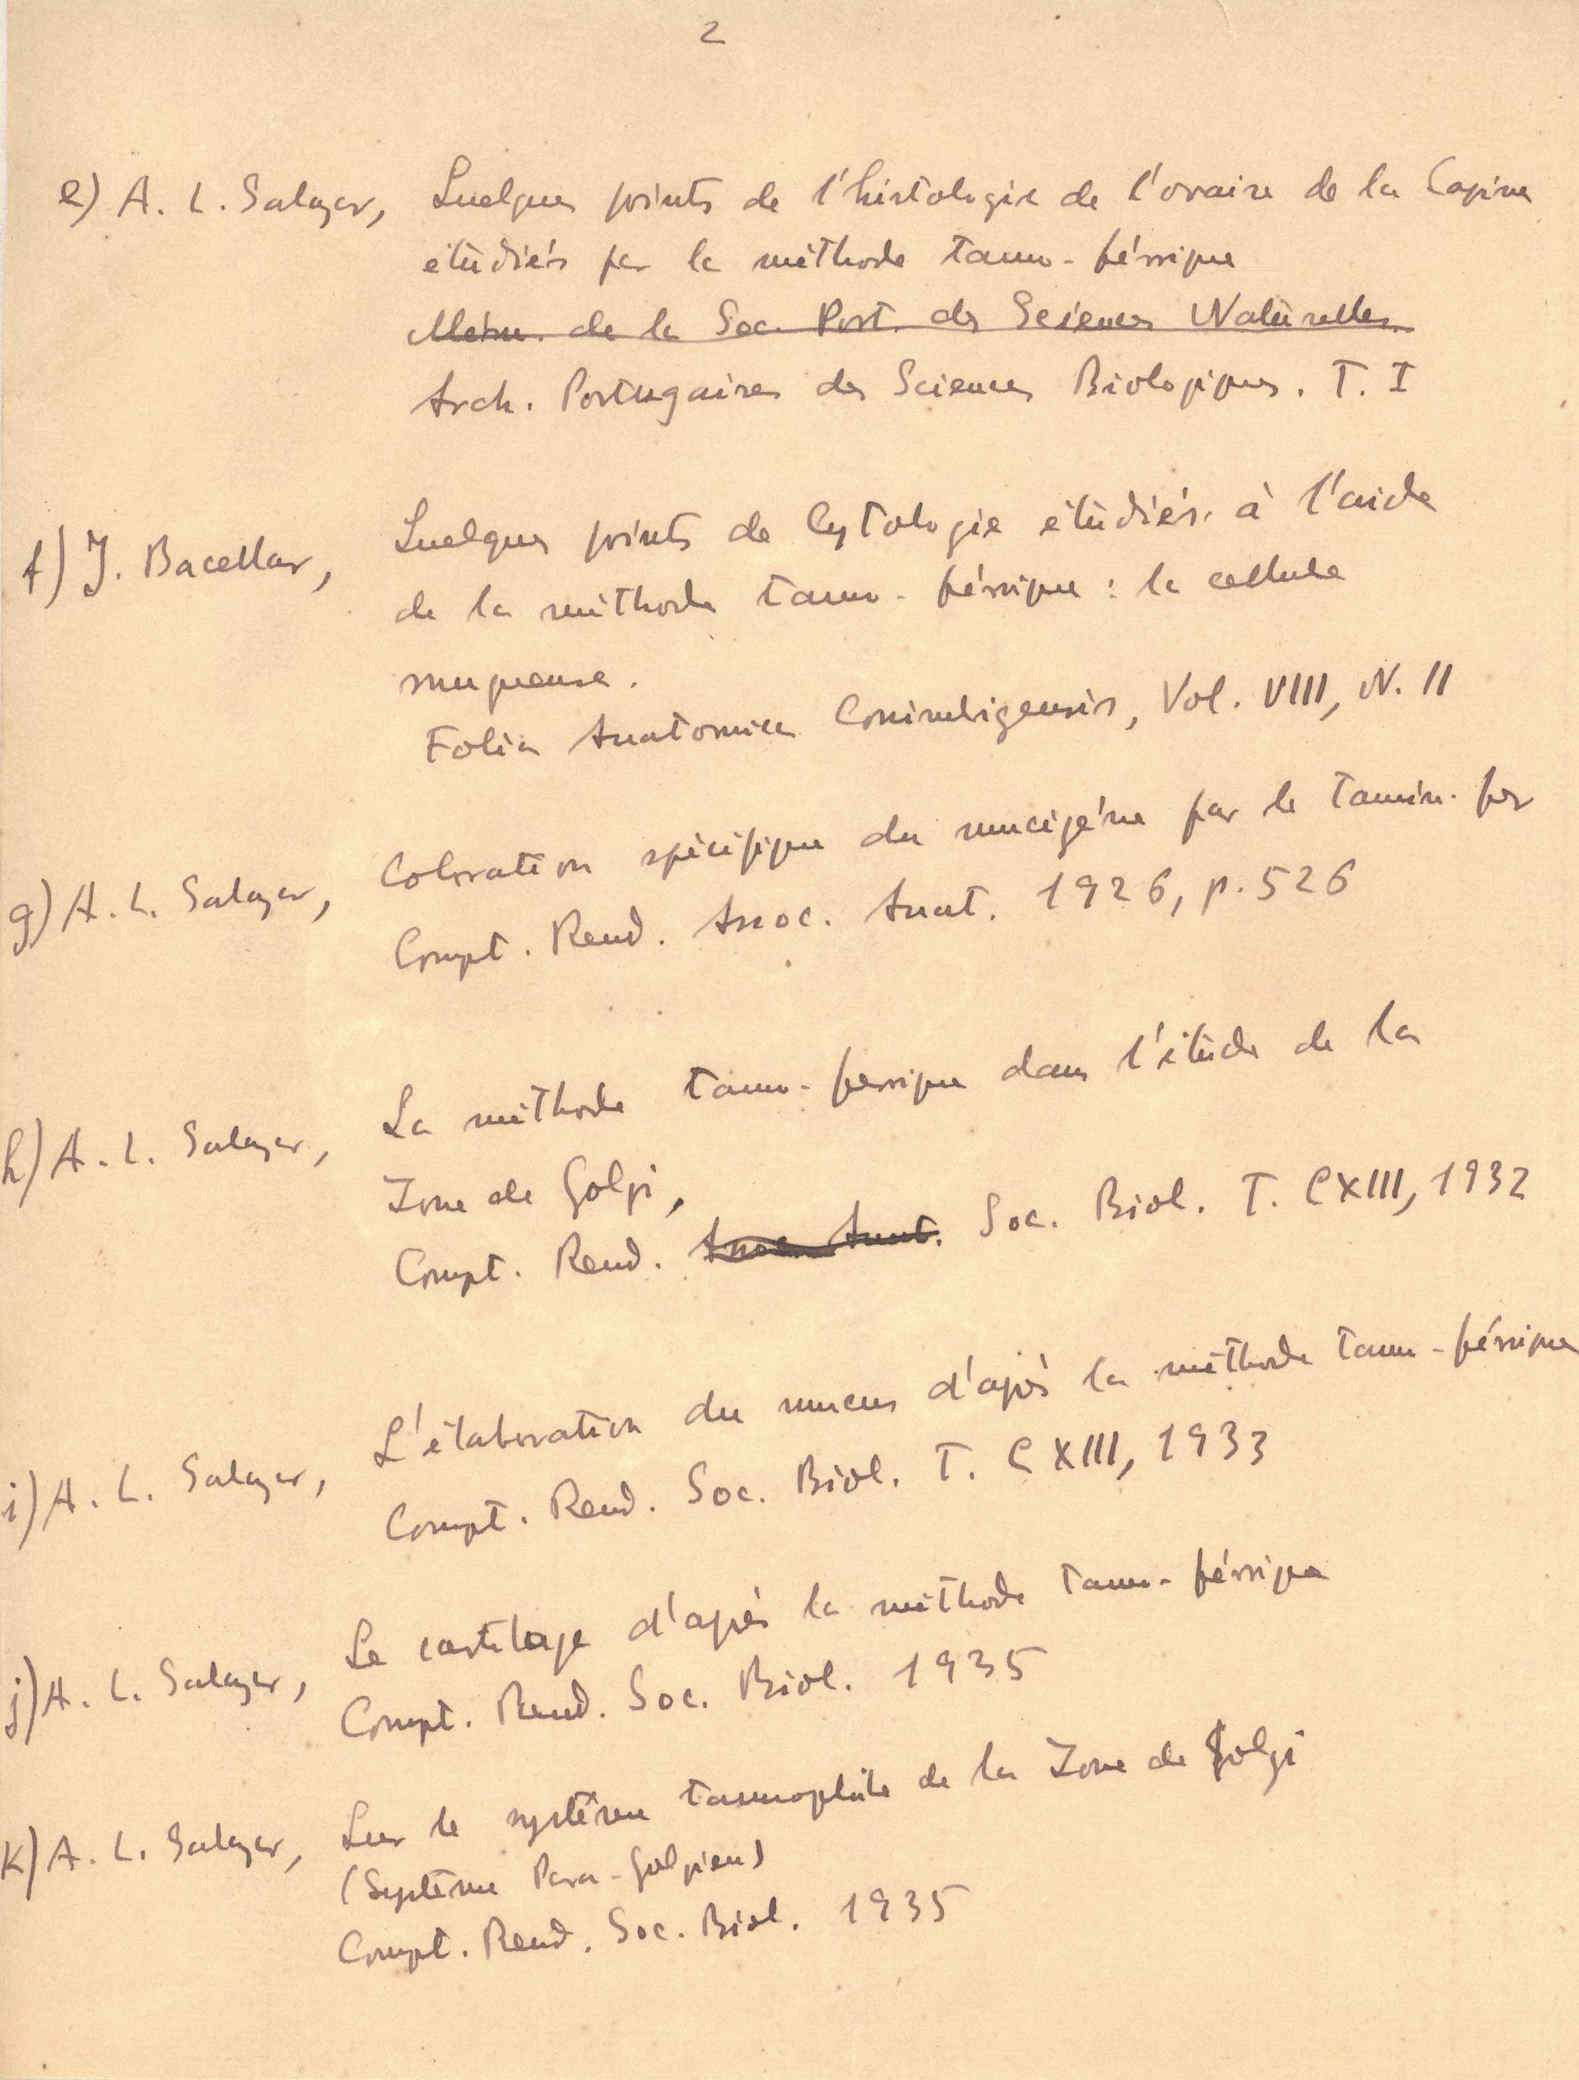 2
e) A. L. Salazar, Quelques points de l'histologie de l'ovaire de la Lapine
étùdiés par la méthode tanno-férrique
Mém. de la Soc. Port. des Sciences Natùrelles
Arch. Portugaires des Sciences Biologiques. T. I
f) J. Bacellar, Quelques points de Cytologie étùdiés à l'aide
de la méthode tanno-férrique : la cellule
muqueuse.
Folia Anatomica Conimbrigensis, Vol. VIII, N. II
g) A. L. Salazar, Coloration spécifique du mucigéne par le tannin-fer
Compt. Rend. Assoc. Anat. 1926, p. 526
h) A. L. Salazar, La méthode tanno-ferrique dans l'étùde de la
Zone de Golgi,
Compt. Rend. Assoc. Anat. Soc. Biol. T. CXIII, 1932
i) A. L. Salazar, L'élaboration du mucus d'après la méthode tanno-férrique
Compt. Rend. Soc. Biol. T. CXIII, 1933
j) A. L. Salazar, Le cartilage d'après la méthode tanno-férrique
Compt. Rend. Soc. Biol. 1935
k) A. L. Salazar, Sur le système tannophile de la Zone de Golgi
(Système Para-Golgien)
Compt. Rend. Soc. Biol. 1935